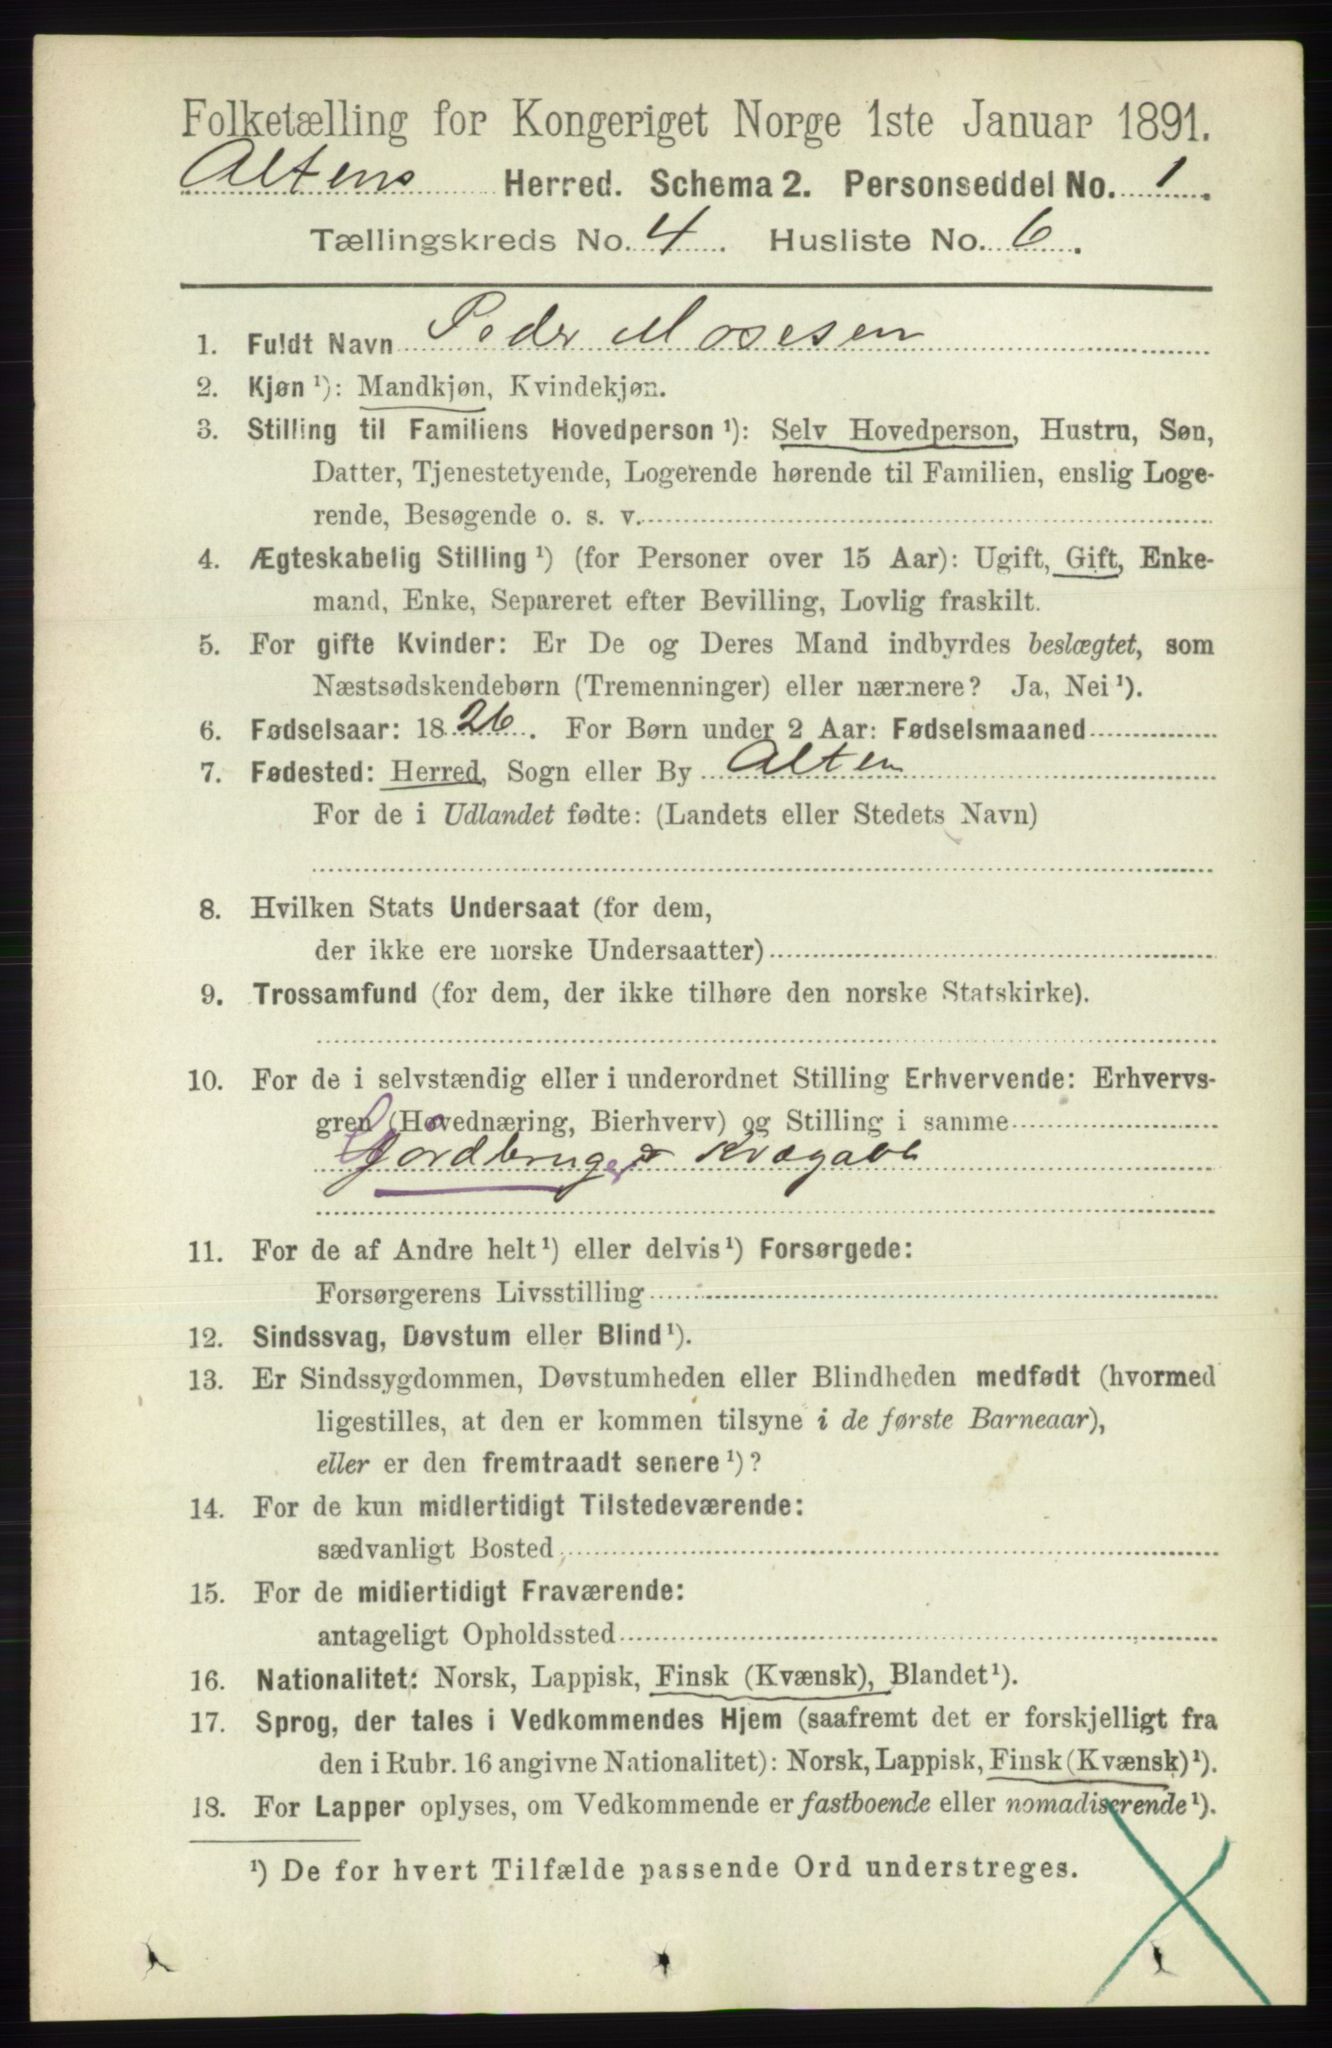 Folketælling for Kongeriget Norge 1ste Januar 1891.
Altens Herred. Schema 2. Personseddel No. 1.
Tællingskreds No. 4. Husliste No. 6.
1. Fuldt Navn Peder Mosesen
2. Kjøn ¹): Mandkjøn, Kvindekjøn.
3. Stilling til Familiens Hovedperson ¹): Selv Hovedperson, Hustru, Søn,
Datter, Tjenestetyende, Logerende hørende til Familien, enslig Loge-
rende, Besøgende o. s. v.
4. Ægteskabelig Stilling ¹) (for Personer over 15 Aar): Ugift, Gift, Enke-
mand, Enke, Separeret efter Bevilling, Lovlig fraskilt.
5. For gifte Kvinder: Er De og Deres Mand indbyrdes beslægtet, som
Næstsødskendebørn (Tremenninger) eller nærmere? Ja, Nei ¹).
6. Fødselsaar: 1826. For Børn under 2 Aar: Fødselsmaaned
7. Fødested: Herred, Sogn eller By Alten
For de i Udlandet fødte: (Landets eller Stedets Navn)
8. Hvilken Stats Undersaat (for dem,
der ikke ere norske Undersaatter)
9. Trossamfund (for dem, der ikke tilhøre den norske Statskirke).
10. For de i selvstændig eller i underordnet Stilling Erhvervende: Erhvervs-
gren (Hovednæring, Bierhverv) og Stilling i samme
Jordbruger
11. For de af Andre helt ¹) eller delvis ¹) Forsørgede:
Forsørgerens Livsstilling
12. Sindssvag, Døvstum eller Blind ¹).
13. Er Sindssygdommen, Døvstumheden eller Blindheden medfødt (hvormed
ligestilles, at den er kommen tilsyne i de første Barneaar),
eller er den fremtraadt senere ¹)?
14. For de kun midlertidigt Tilstedeværende:
sædvanligt Bosted
15. For de midlertidigt Fraværende:
antageligt Opholdssted
16. Nationalitet: Norsk, Lappisk, Finsk (Kvænsk), Blandet ¹).
17. Sprog, der tales i Vedkommendes Hjem (saafremt det er forskjelligt fra
den i Rubr. 16 angivne Nationalitet): Norsk, Lappisk, Finsk (Kvænsk) ¹).
18. For Lapper oplyses, om Vedkommende er fastboende eller nomadiserende ¹).
¹) De for hvert Tilfælde passende Ord understreges.